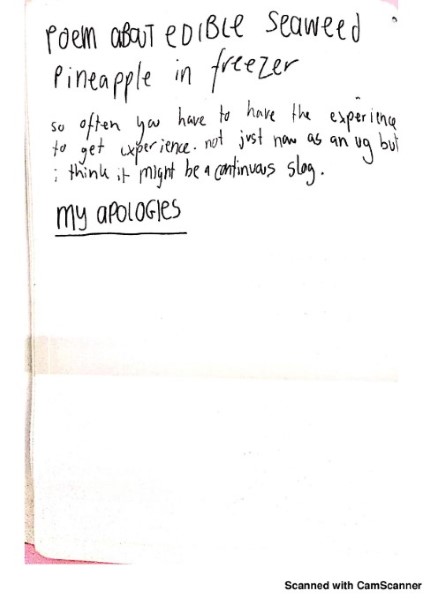 POEM ABOUT EDIBLE SEAWEED
Pineapple in freezer
so often you have to have the experience
to get experience. not just now as an ug but
i think it might be a continuous slog.
MY APOLOGIES
Scanned with CamScanner